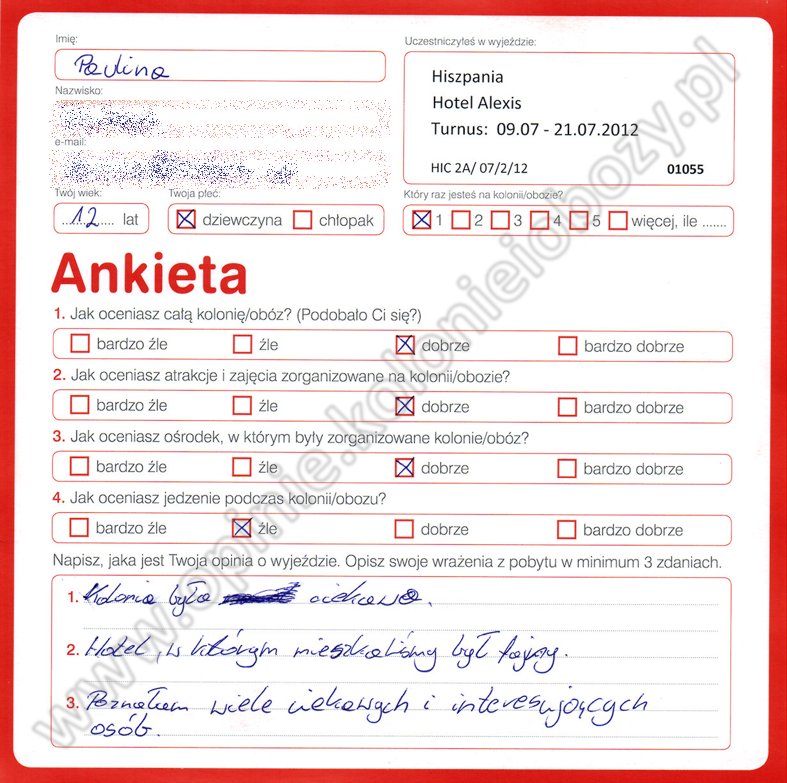 Imię:
Paulina
Uczestniczyłeś w wyjeździe:
Hiszpania
Hotel Alexis
Turnus: 09.07 - 21.07.2012
HIC 2A/ 07/2/12 01055
Nazwisko:
e-mail:
Twój wiek:
12 lat
Twoja płeć:
dziewczyna chłopak
Który raz jesteś na kolonii/obozie?
1 2 3 4 5 więcej, ile .......
Ankieta
1. Jak oceniasz całą kolonię/obóz? (Podobało Ci się?)
bardzo źle źle dobrze bardzo dobrze
2. Jak oceniasz atrakcje i zajęcia zorganizowane na kolonii/obozie?
bardzo źle źle dobrze bardzo dobrze
3. Jak oceniasz ośrodek, w którym były zorganizowane kolonie/obóz?
bardzo źle źle dobrze bardzo dobrze
4. Jak oceniasz jedzenie podczas kolonii/obozu?
bardzo źle źle dobrze bardzo dobrze
Napisz, jaka jest Twoja opinia o wyjeździe. Opisz swoje wrażenia z pobytu w minimum 3 zdaniach.
1. Kolonia była ciekawa.
2. Hotel, w którym mieszkaliśmy był fajny.
3. Poznałam wiele ciekawych i interesujących
osób.
www.opinie.kolonieiobozy.pl